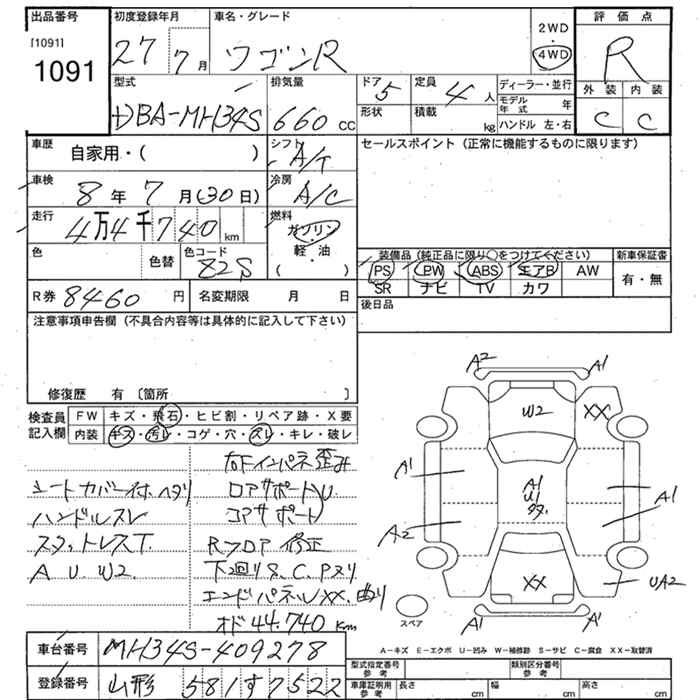 出品番号 初度登録年月 車名・グレード 評価点
[1091] 1091 27 7月 ワゴンR 2WD 4WD R
型式 排気量 ドア 5 定員 4人 ディーラー・並行 外装 内装
DBA-MH34S 660cc 形状 積載 kg モデル年式 年 ハンドル 左・右 C C
車歴 自家用・( ) シフト A/T セールスポイント（正常に機能するものに限ります）
車検 8年 7月(30日) 冷房 A/C
走行 4万4千740km 燃料 ガソリン 軽・油 ( )
色 色替 色コード Z2S 装備品（純正品に限り○をつけてください） 新車保証書
PS PW ABS エアB AW 有・無
SR ナビ TV カワ
R券 8460円 名変期限 月 日 後日品
注意事項申告欄（不具合内容等は具体的に記入して下さい）
修復歴 有〔箇所 〕
検査員記入欄 FW キズ・飛石・ヒビ割・リペア跡・X要
内装 キズ・汚レ・コゲ・穴・スレ・キレ・破レ
右Fインパネ歪み
シートカバー付.ヘタリ ロアサポートU
ハンドルスレ コアサポート
スタットレスT. Rフロア 修正
A U. W2 下回りS.C.Pヌリ
エンドパネルXX.曲り
オド44.740Km
A2 A1
W2 XX
A1 A1 U1 A1
A2
XX UA2
A1 A1
スペア
A－キズ E－エクボ U－凹み W－補修跡 S－サビ C－腐食 XX－取替済
車台番号 MH34S-409278
登録番号 山形 581 す 7522
型式指定番号 参考 類別区分番号 参考
車庫証明用 参考 長さ cm 幅 cm 高さ cm